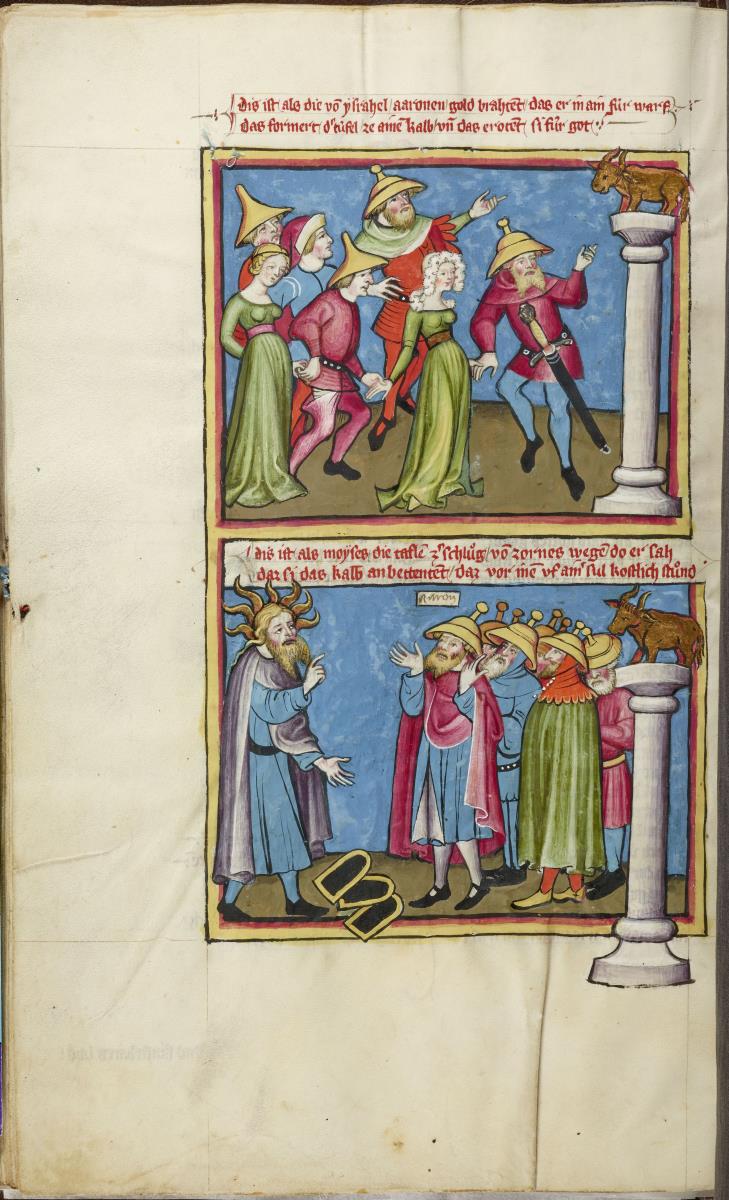 Dis ist als die vō ysrahel / aaronen gold brahtēt / das er in ain für warf
das formert dͬ tüfel ze ainē kalb / vn̄ das erotēt si für got
dis ist als moyses die taflē zͬschlůg / vō zornes wegē do er sah
daz si das kalb anbettentēt / daz vor inē vf ainͬ sul kostlich stůnd
aaron